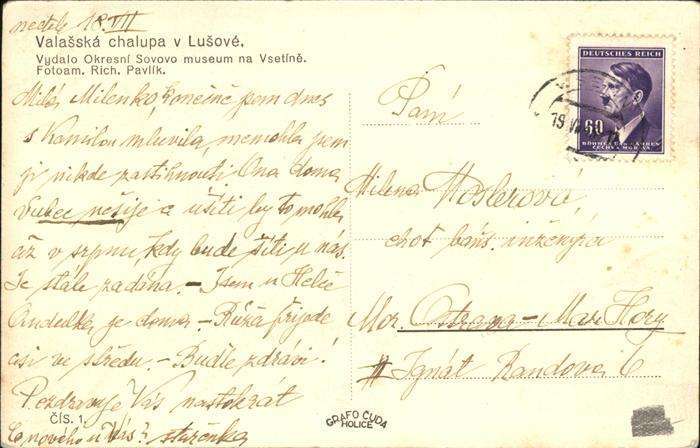 neděle 18.VII
Valašská chalupa v Lušové.
Vydalo Okresní Sovovo museum na Vsetíně.
Fotoam. Rich. Pavlík.
Milá Milenko, konečně jsem dnes
s Kamilou mluvila, nemohla jsem
ji nikde zastihnouti Ona doma
vubec nešije a ušíti by to mohla
až v srpnu, kdy bude šíti u nás.
Je stále zadána. – Jsem u Helči
Andulka je doma – Růža přijede
asi ve středu. – Buďte zdrávi!
Pozdravuje Vás nastokrát
Co nového u Vás? stařenka
ČÍS. 1.
GRAFO ČUDA
HOLICE
DEUTSCHES REICH
60
BÖHMEN UND MÄHREN
ČECHY A MORAVA
19 VII
Paní
Milena
choť báňs. inženýra
Mor. Ostrava – Mar. Hory
Ignát Randova 6